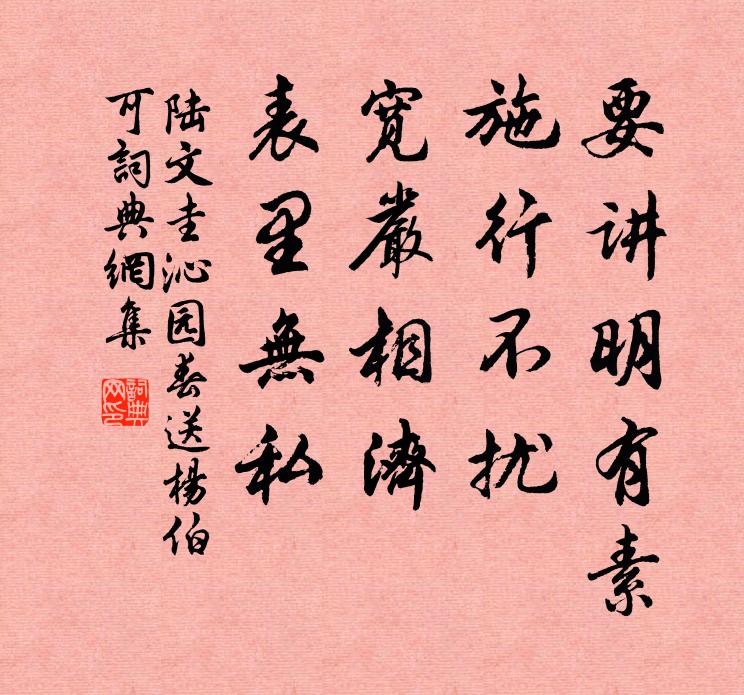 要讲明有素
施行不扰
寛嚴相濟
表里無私
陆文圭沁园春送楊伯
可詞典網集
詞典网印